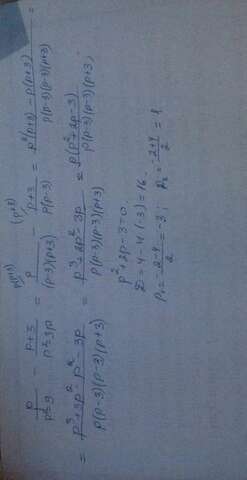 p/(p²-9) - (p+3)/(p²-3p) = p/((p-3)(p+3)) - (p+3)/(p(p-3)) = (p²(p+3) - p(p+3))/(p(p-3)(p+3)) =
= (p³+3p²-p²-3p)/(p(p-3)(p+3)) = (p³+2p²-3p)/(p(p-3)(p+3)) = p(p²+2p-3)/(p(p-3)(p+3));
p²+2p-3=0
D=4-4·(-3)=16
p₁=(-2-4)/2=-3; p₂=(-2+4)/2=1